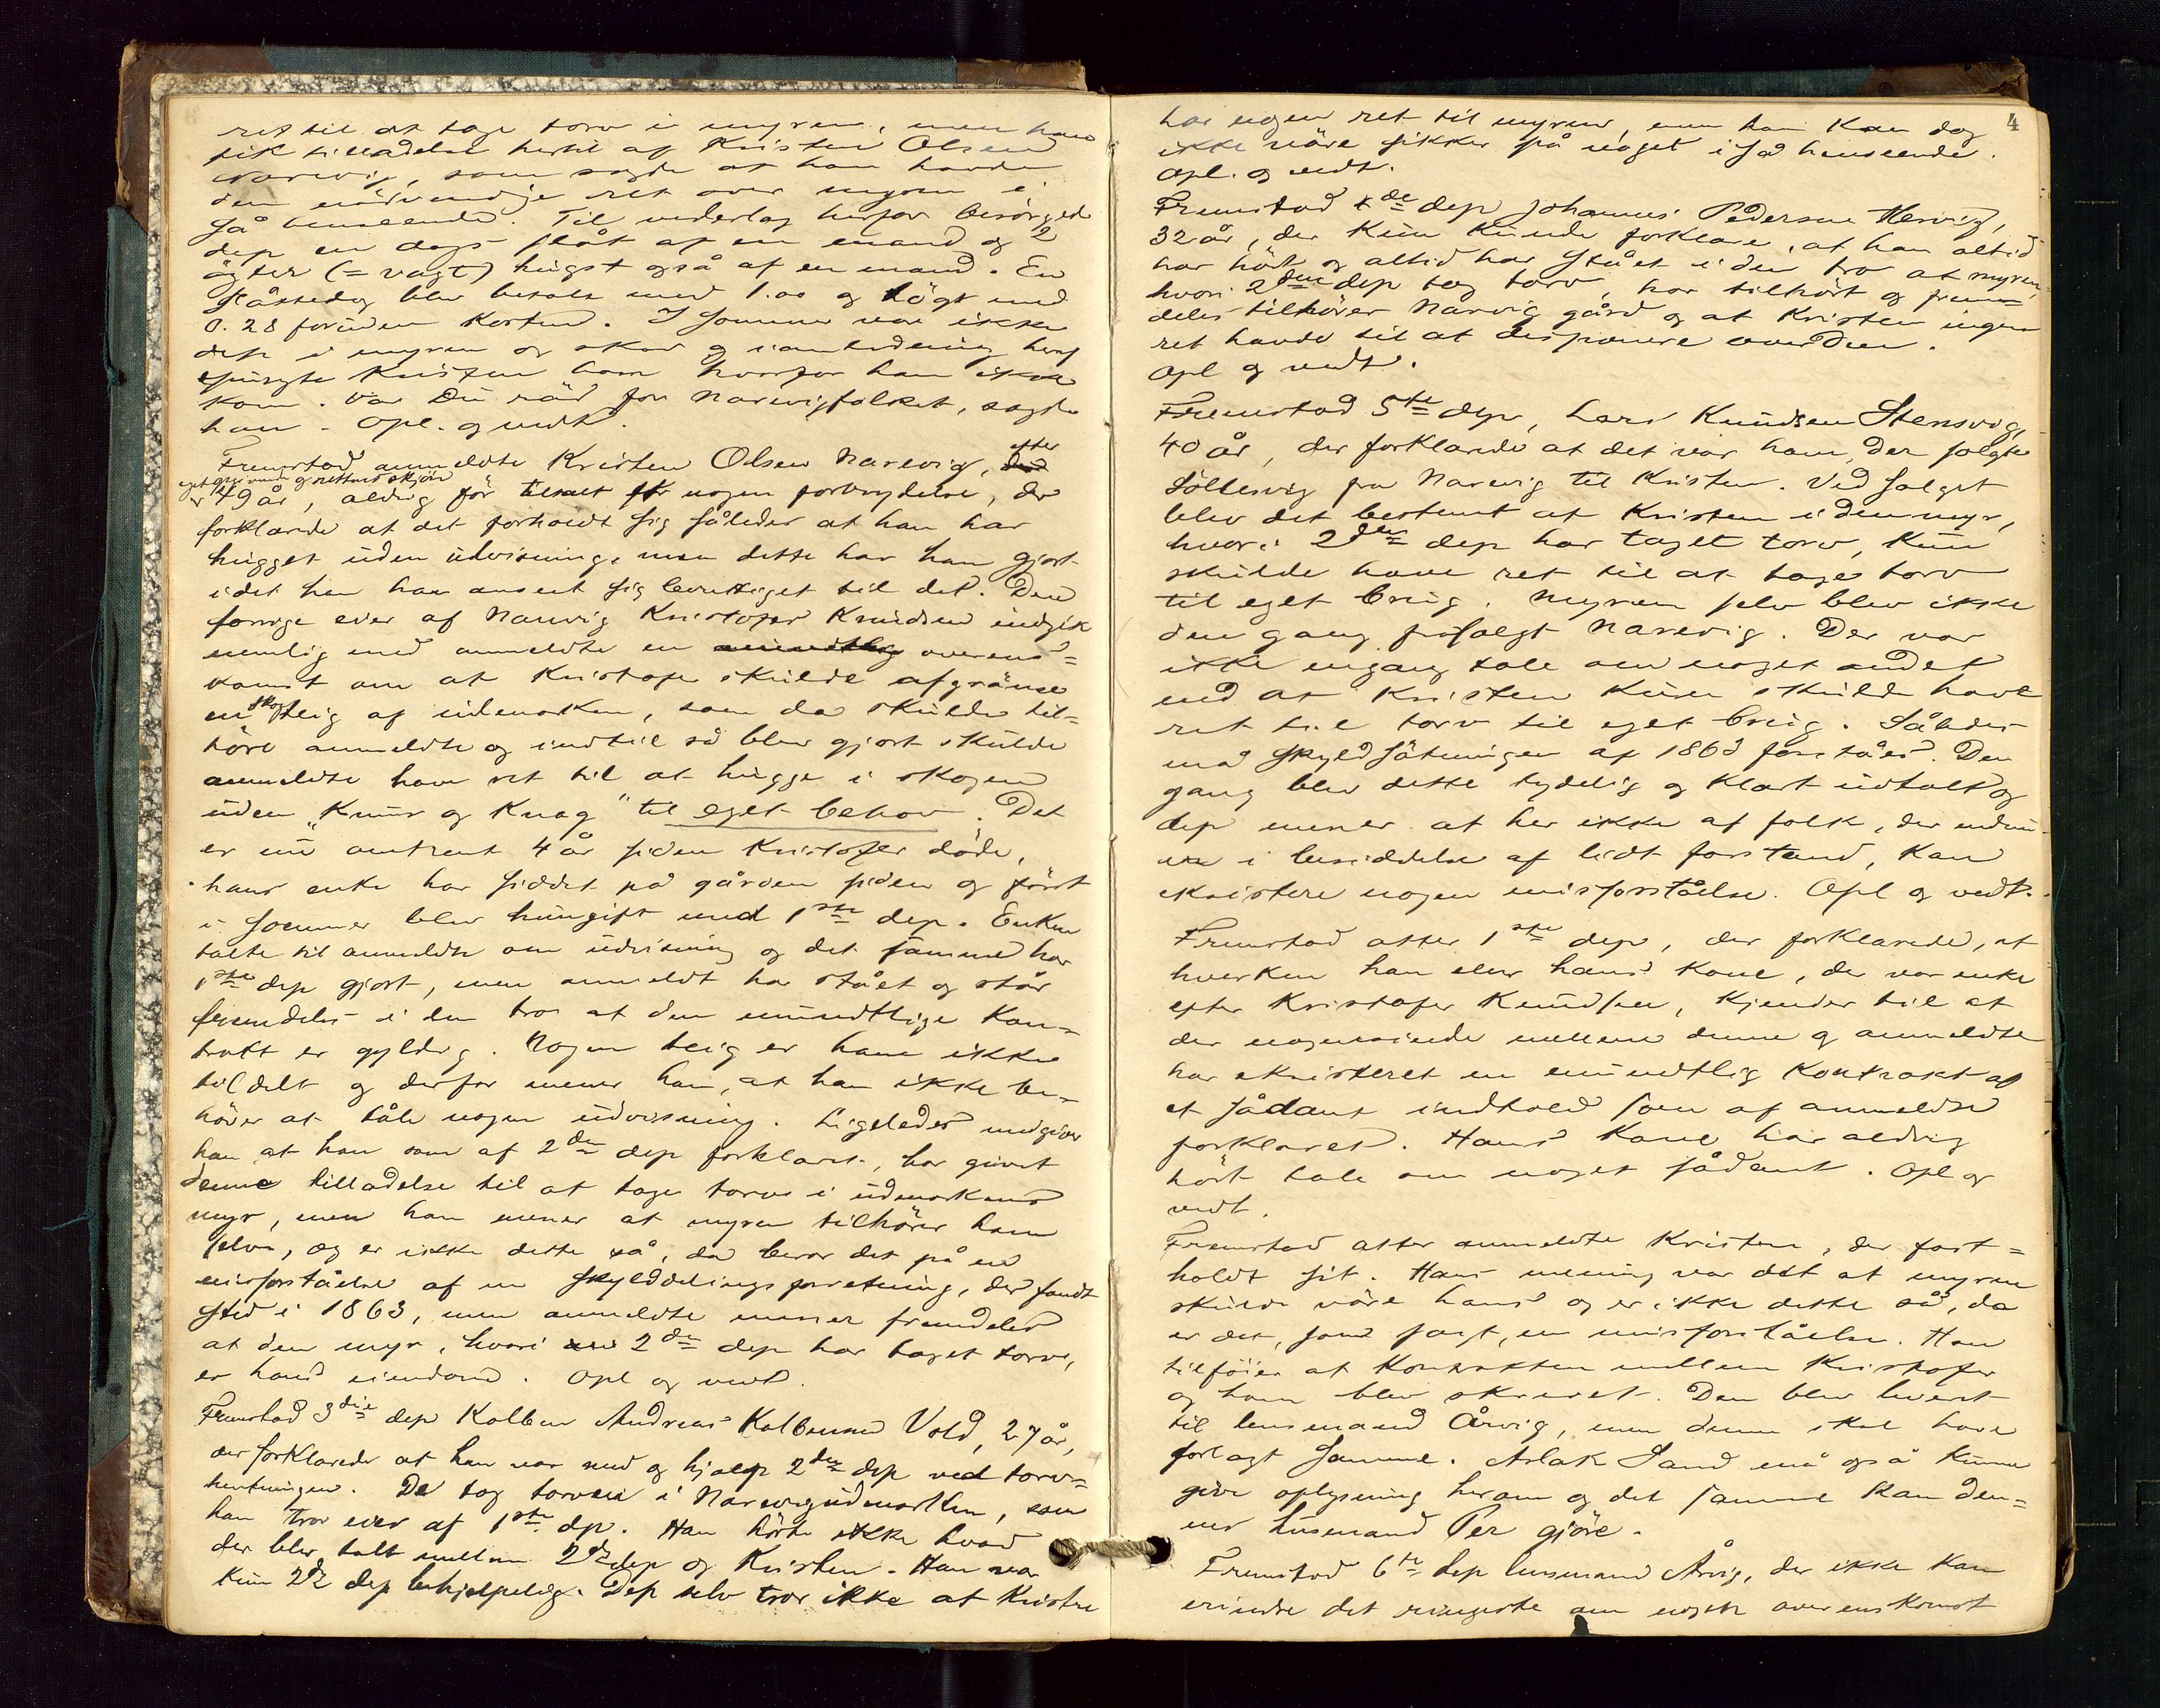 ret til at tage torv i myren, men han
fik tilladelse hertil af Kristen Olsen
Narevig, som sagde at han havde
den nødvendige ret over myren i
så henseende. Til vederlag herfor besörgede
dep en dags slåt af en mand og 2
ägter (= vagt) hugst også af en mand. En
slåttedag blev betalt med 1.00 og lögt med
0.28 foruden kosten. I sommer var ikke
dep i myren og skar og i anledning heraf
spurgte Kristen ham hvorfor han ikke
kom. Var Du räd for Narevigfolket, sagde
han. Opl. og vedt.
Fremstod anmeldte Kristen Olsen Narevig, efter
eget opgivende og rettens skjön
49 år, aldrig för tiltalt for nogen forbrydelse, der
forklarede at det forholdt sig således at han har
hugget uden udvisning, men dette har han gjort
idet han har anseet sig berettiget til det. Den
forrige eier af Narevig Kristofer Knudsen indgik
nemlig med anmeldte en mundtlig overens=
komst om at Kristofer skulde afgränse
en skogteig af udmarken, som da skulde til=
höre anmeldte og indtil så blev gjort skulde
anmeldte have ret til at hugge i skogen
uden "Knur og Knag" til eget behov. Det
er nu omtrent 4 år siden Kristofer döde,
hans enke har siddet på gården siden og först
i sommer blev hun gift med 1ste dep. Enken
talte til anmeldte om udvisning og det samme har
1ste dep gjort, men anmeldt har stået og står
fremdeles i den tro at den mundtlige Kon=
trakt er gyldig. Nogen teig er ham ikke
tildelt og derfor mener han, at han ikke be=
höver at tåle nogen udvisning. Ligeledes medgiver
han at han som af 2den dep forklaret, har givet
denne tilladelse til at tage torv i udmarkens
myr, men han mener at myren tilhörer ham
selv, og er ikke dette så, da beror det på en
misforståelse af en skylddelingsforretning, der fandt
sted i 1863, men anmeldte mener fremdeles
at den myr, hvori 2den dep har taget torv,
er hans eiendom. Opl og vedt.
Fremstod 3die dep Kolben Andreas Kolbensen Vold, 27 år,
der forklarede at han var med og hjalp 2den dep ved torv=
hentningen. De tog torven i Narevigudmarken, som
han tror eies af 1ste dep. Han hörte ikke hvad
der blev talt mellem 2den dep og Kristen. Han var
kun 2den dep behjelpelig. Dep selv tror ikke at Kristen
4
har nogen ret til myren, men han kan dog
ikke väre sikker på noget i så henseende.
Opl. og vedt.
Fremstod 4de dep Johannes Pedersen Hervig,
32 år, der kun kunde forklare, at han altid
har hört og altid har stået i den tro at myren,
hvori 2den dep tog torv, har tilhört og frem=
deles tilhörer Narvig gård og at Kristen ingen
ret havde til at disponere over den.
Opl og vedt.
Fremstod 5te dep, Lars Knudsen Stensvig,
40 år, der forklarede at det var ham, der solgte
Söltesvig fra Narevig til Kristen. Ved salget
blev det bestemt at Kristen i den myr,
hvori 2den dep har taget torv, kun
skulde have ret til at tage torv
til eget brug. Myren selv blev ikke
den gang frasolgt Narevig. Der var
ikke engang tale om noget andet
end at Kristen kun skulde have
ret til torv til eget brug. Således
må skyldsätningen af 1863 forståes. Den
gang blev dette tydelig og klart udtalt og
dep mener at her ikke af folk, der endnu
er i besiddelse af lidt forstand, kan
eksistere nogen misforståelse. Opl og vedt.
Fremstod atter 1ste dep, der forklarede, at
hverken han eller hans kone, der var enke
efter Kristofer Knudsen, kjender til at
der nogensinde mellem denne og anmeldte
har eksisteret en mundtlig kontrakt af
et sådant indhold som af anmeldte
forklaret. Hans kone har aldrig
hört tale om noget sådant. Opl og
vedt.
Fremstod atter anmeldte Kristen, der fast=
holdt sit. Hans mening var det at myren
skulde väre hans og er ikke dette så, da
er det, som sagt, en misforståelse. Han
tilföier at kontrakten mellem Kristofer
og ham blev skrevet. Den blev levert
til lensmand Årvig, men denne skal have
forlagt samme. Aslak Sand må også kunne
give oplysning herom og det samme kan den=
nes husmand Per gjöre.
Fremstod 6te dep lensmand Årvig, der ikke kan
erindre det ringeste om nogen overenskomst